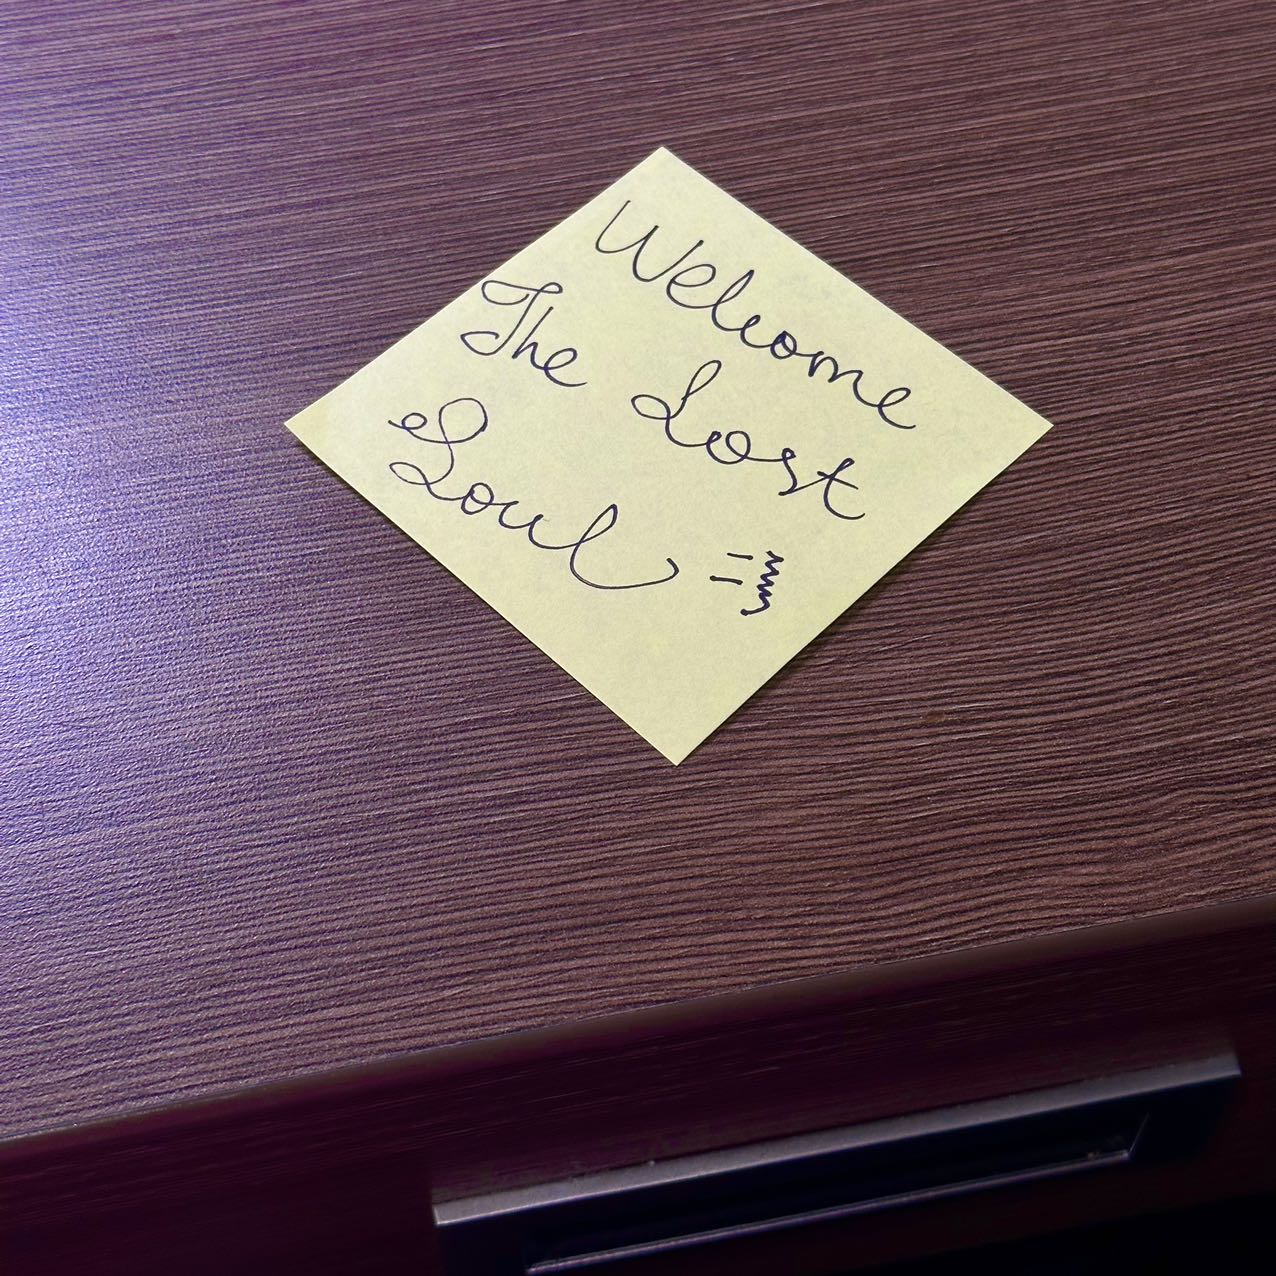 Welcome
The Lost
Soul =}